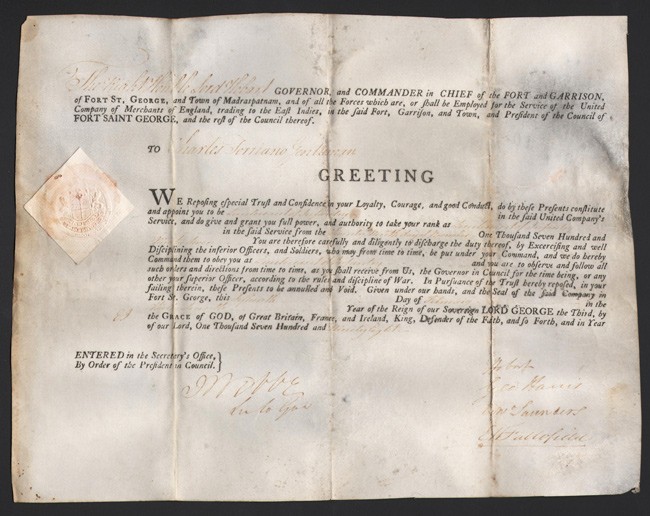 The Right Honble Lord Hobart GOVERNOR, and COMMANDER in CHIEF of the FORT and GARRISON,
of FORT ST, GEORGE, and Town of Madraspatnam, and of all the Forces which are, or shall be Employed for the Service of the United
Company of Merchants of England, trading to the East Indies, in the said Fort, Garrison, and Town, and President of the Council of
FORT SAINT GEORGE, and the rest of the Council thereof.
TO Charles
GREETING
WE Reposing especial Trust and Confidence in your Loyalty, Courage, and good Conduct, do by these Presents constitute
and appoint you to be in the said United Company's
Service, and do give and grant you full power, and authority to take your rank as
in the said Service from the One Thousand Seven Hundred and
You are therefore carefully and diligently to discharge the duty thereof, by Excercising and well
Disciplining the inferior Officers, and Soldiers, who may from time to time, be put under your Command, and we do hereby
Command them to obey you as and you are to observe and follow all
such orders and directions from time to time, as you shall receive from Us, the Governor in Council for the time being, or any
other your superior Officer, according to the rules and discipline of War. In Pursuance of the Trust hereby reposed, in your
failing therein, these Presents to be annulled and Void. Given under our hands, and the Seal of the said Company in
Fort St. George, this Day of in the
Year of the Reign of our Sovereign LORD GEORGE the Third, by
the GRACE of GOD, of Great Britain, France, and Ireland, King, Defender of the Faith, and so Forth, and in Year
of our Lord, One Thousand Seven Hundred and Ninety eight
ENTERED in the Secretary's Office,
By Order of the President in Council.
Hobart
Geo Harris
Saunders
E W Fallofield